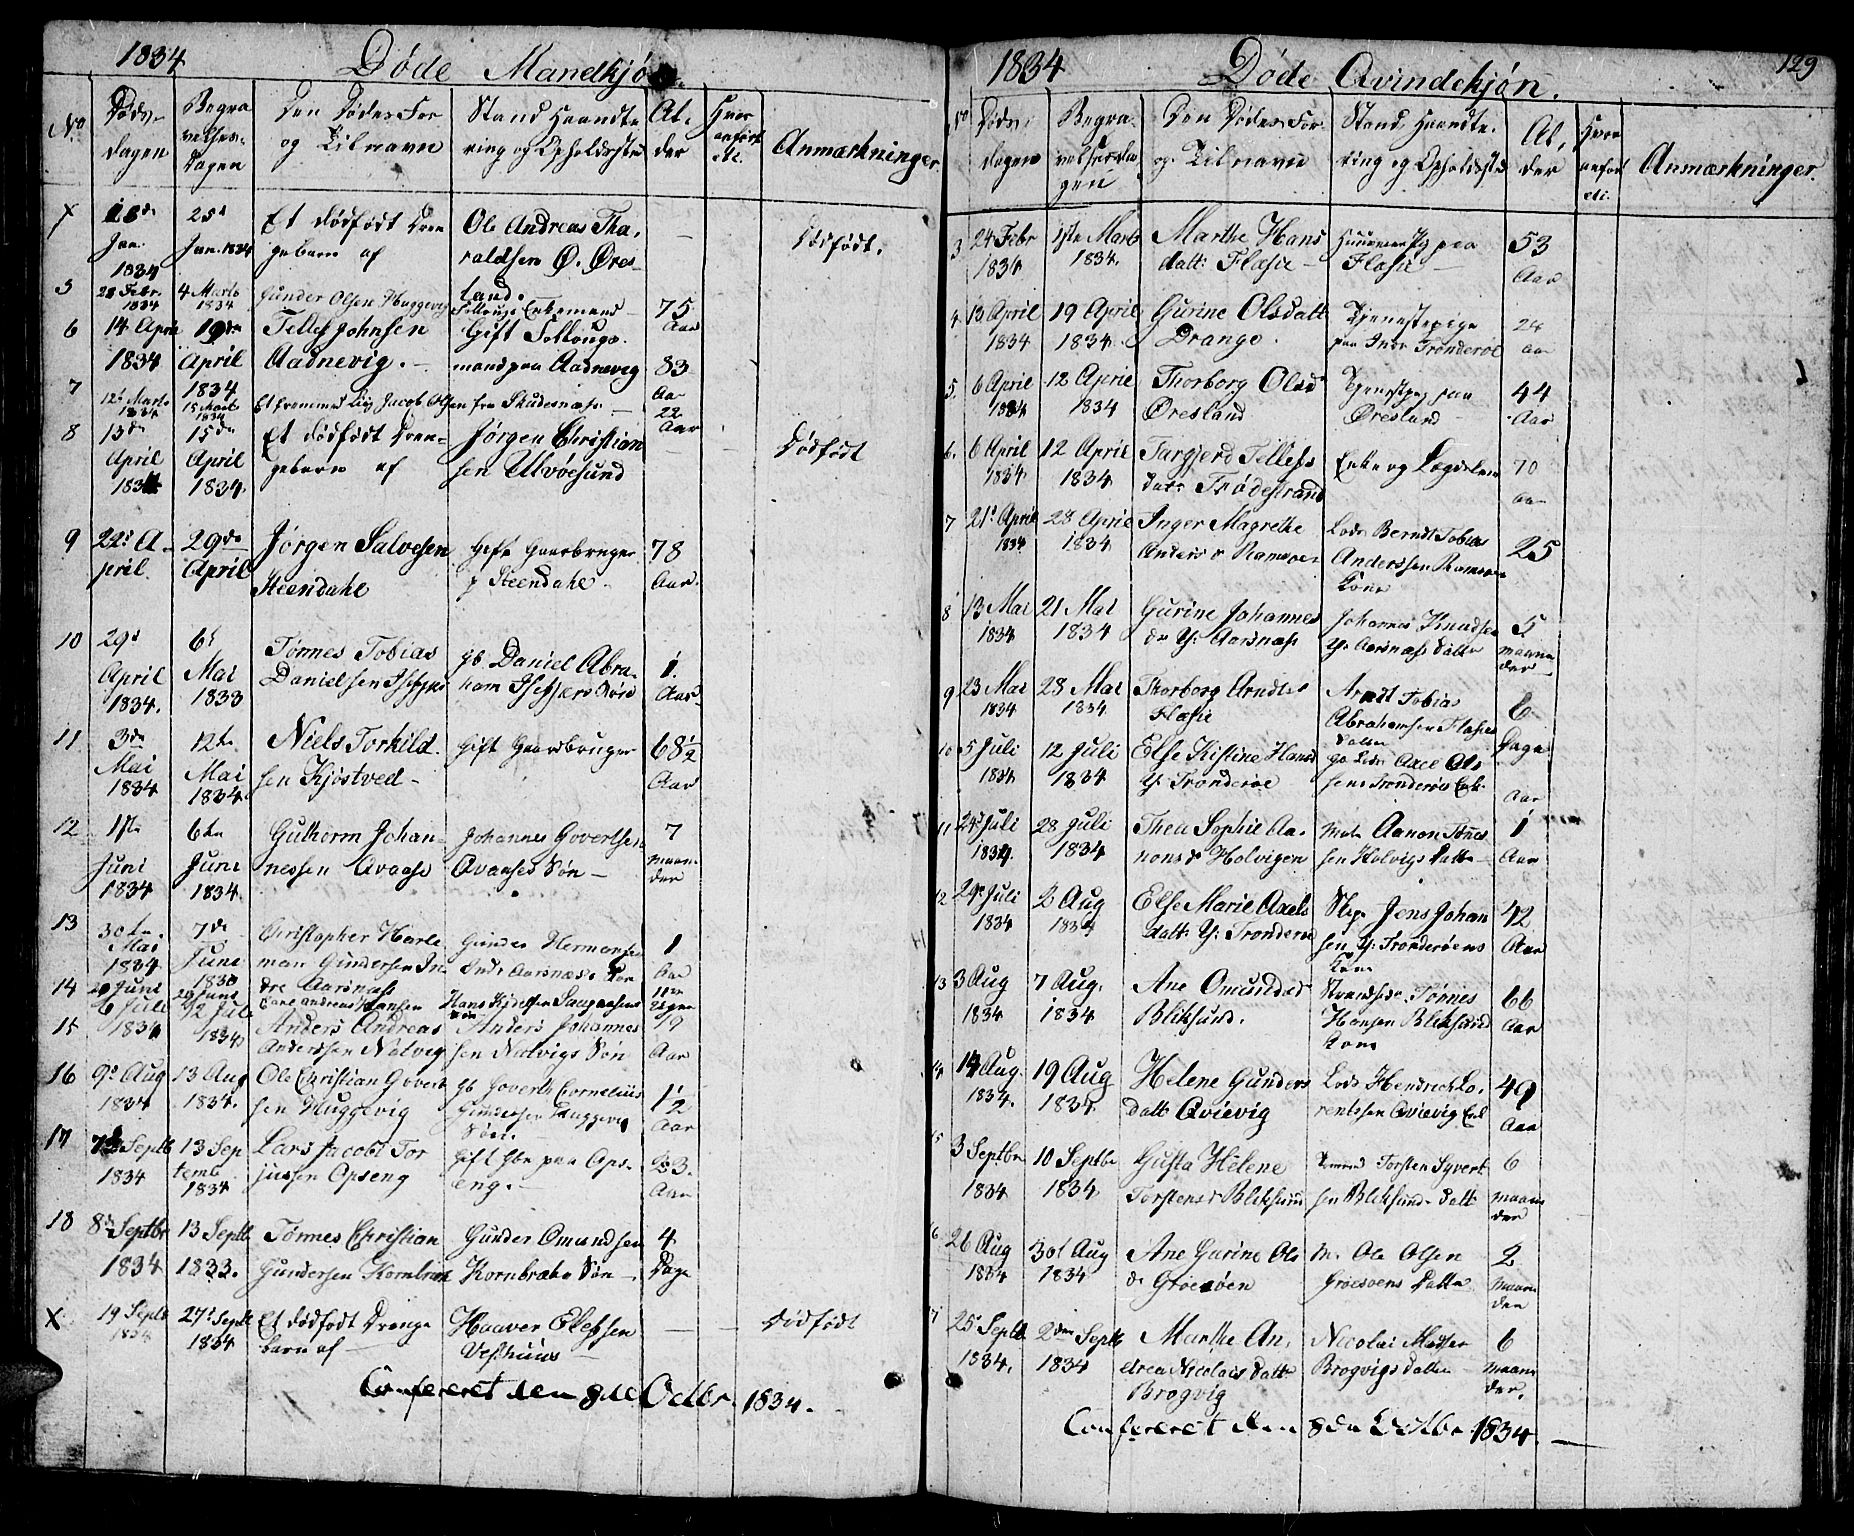 1834 Døde Mandkjøn.
No
Døds-
dagen
Begra
velses-
Dagen
Den Dødes For
og Tilnavn
Stand Haandte
ring og Opholdssted
Al-
der
Hvor
anført
etc.
Anmærkninger
X
Jan.
1834
25d
Jan. 1834
Et dødfødt Dren
gebarn af
Ole Andreas Tha-
raldsen Ø. Øres-
land.
—
Dødfødt.
5
28 Febr.
1834
4 Marts
1834
Gunder Olsen Huggevig
Enkemand
75
Aar
6
14 April
1834
19de
April
1834
Tellef Johnsen
Aadnevig.
Gift
mand paa Aadnevig
83
Aar
7
12t Marts
1834
15 Marts
1834
Et fremmed Liig Jacob Olsen fra Skudesnæs
22
Aar
8
13de
April
1834
15de
April
1834.
Et dødfødt Dren-
gebarn af
Jørgen Christian
sen Ulvøesund
Dødfødt
9
22d A-
pril.
29de
April
Jørgen Salvesen
Steendahl
Gift Gaardbruger
p Steendahl
78
Aar.
10
29d
April
1834.
6t
Mai
1833
Tønnes Tobias
Danielsen
gb Daniel Abra-
ham
1.
Aar
11
3de
Mai
1834
12te
Mai
1834
Niels Torkild-
sen Kjøstved
Gift Gaardbruger
68½
Aar
12
1ste
Juni
1834
6te
Juni
1834.
Guthorm Johan-
nessen Qvaase
Johannes Govertsen
Qvaases Søn
7
maane
der
13
30te
Mai
1834
7de
Juni
1833
Christopher Harle
man Gundersen In
dre Aarsnæs
Gunder Hermansen
Indr Aarsnæs Søn
1
Aar
14
20 Juni
29 Juni
Carl Andreas Hansen
Hans
15
6 Juli
1834
12 Juli
1834
Anders Andreas
Anderssen Natvig
Anders Johannes
sen Natvigs Søn
19
Aar
16
9d Aug
1834
13 Aug
1834.
Ole Christian Govert
sen Huggevig
gb Govert Cornelius
Gundersen Huggevig
Søn.
1½
Aar
17
7de Septb
1834
13 Sep
temb
1834
Lars Jacob Tor
jussen Opseng
Gift paa Ops-
eng.
23.
Aar
18
8de Septbr
1834
13 Septb
1833.
Tønnes Christian
Gundersen Kornbræk
Gunder Omundsen
Kornbræke Søn
4
Dage
X
19 Septb
1834
27d Septb
1834
Et dødfødt Drenge
barn af
Haaver Elefsen
Vesthuus
Dødfødt
Confereret den 8de Octbr. 1834.
129
1834 Døde Qvindekjøn.
No
Døds-
dagen
Begra-
velsesda
gen
Den Dødes For-
og Tilnavn
Stand, Haandte-
ring og Opholdssted
Al-
der
Hvor
anført
etc.
Anmærkninger.
3
24 Febr
1834
1ste Marts
1834.
Marthe Hans
datt: Flasie
paa
Flasie
53
Aar
4.
13 April
1834
19 April
1834.
Gurine Olsdatt
Drange.
Tjenestepige
paa Indr Trønderøe
24
aar
5.
6 April
1834
12 April
1834
Thorborg Olsd
Øresland
paa
Øresland
44
Aar
6.
6 April
1834
12 April
1834
Targjerd Tellefs
datt Frødestrand
Enke og Lægdslem
70
aar
7
21d April
1834
28 April
1834
Inger Magrethe
Anders d Ramsøe
Lods Berndt Tobias
Anderssen Ramsøe
Kone
25
8
13 Mai
1834
21 Mai
1834
Gurine Johannes
da Y: Aarsnæs
Johannes Knudsen
Y: Aarsnæs Datte
5
maane
der
9
23 Mai
1834
28 Mai
1834
Thorborg Arndts
Flasie
Arndt Tobias
Abrahamsen Flasies
Datter
6
Dage
10
5 Juli
1834
12 Juli
1834
Else Kistine Hansd
Y: Trønderøe
Lods Axel Ol
sens Trønderøe Enk:
Aar
11
24d Juli
1834.
28 Juli
1834
Thea Sophie Aa-
nonsd Holvigen
Aanon Tønes
sen Holvigs Datte
1
Aar
12
29d Juli
1834
2 Aug
1834
Else Marie Axels
datt: Y: Trønderøe
Skp. Jens Johan
sen Y: Trønderøens
Kone
42
Aar
13
3 Aug
1834
7 Aug.
1834
Ane Omundsd
Bliksund.
Tønnes
Hansen Bliksund
Kone
66
Aar
14
14 Aug.
1834.
19 Aug
1834.
Helene Gunders
datt: Qvievig
Lods Hendrich Lo-
rentssen Qvievig Enk
49
Aar
15
3 Septbr
1834
10 Septbr
1834
Gusta Helene
Torstens d Bliksund
Torsten Syvert
sen Bliksunds Datt
6
maane
der
16
26 Aug
1834
30t Aug
1834
Ane Gurine Ols
d Groesøen
M. Ole Olsen
Groesøens Datte
2
maane
der
17
25 Septb
1834.
2den Septb
1834
Marthe An-
drea Nicolais Datt
Brogvig
Nicolai
Brogvigs Datter
6
maane
der.
Confereret den 8de Octbr 1834.